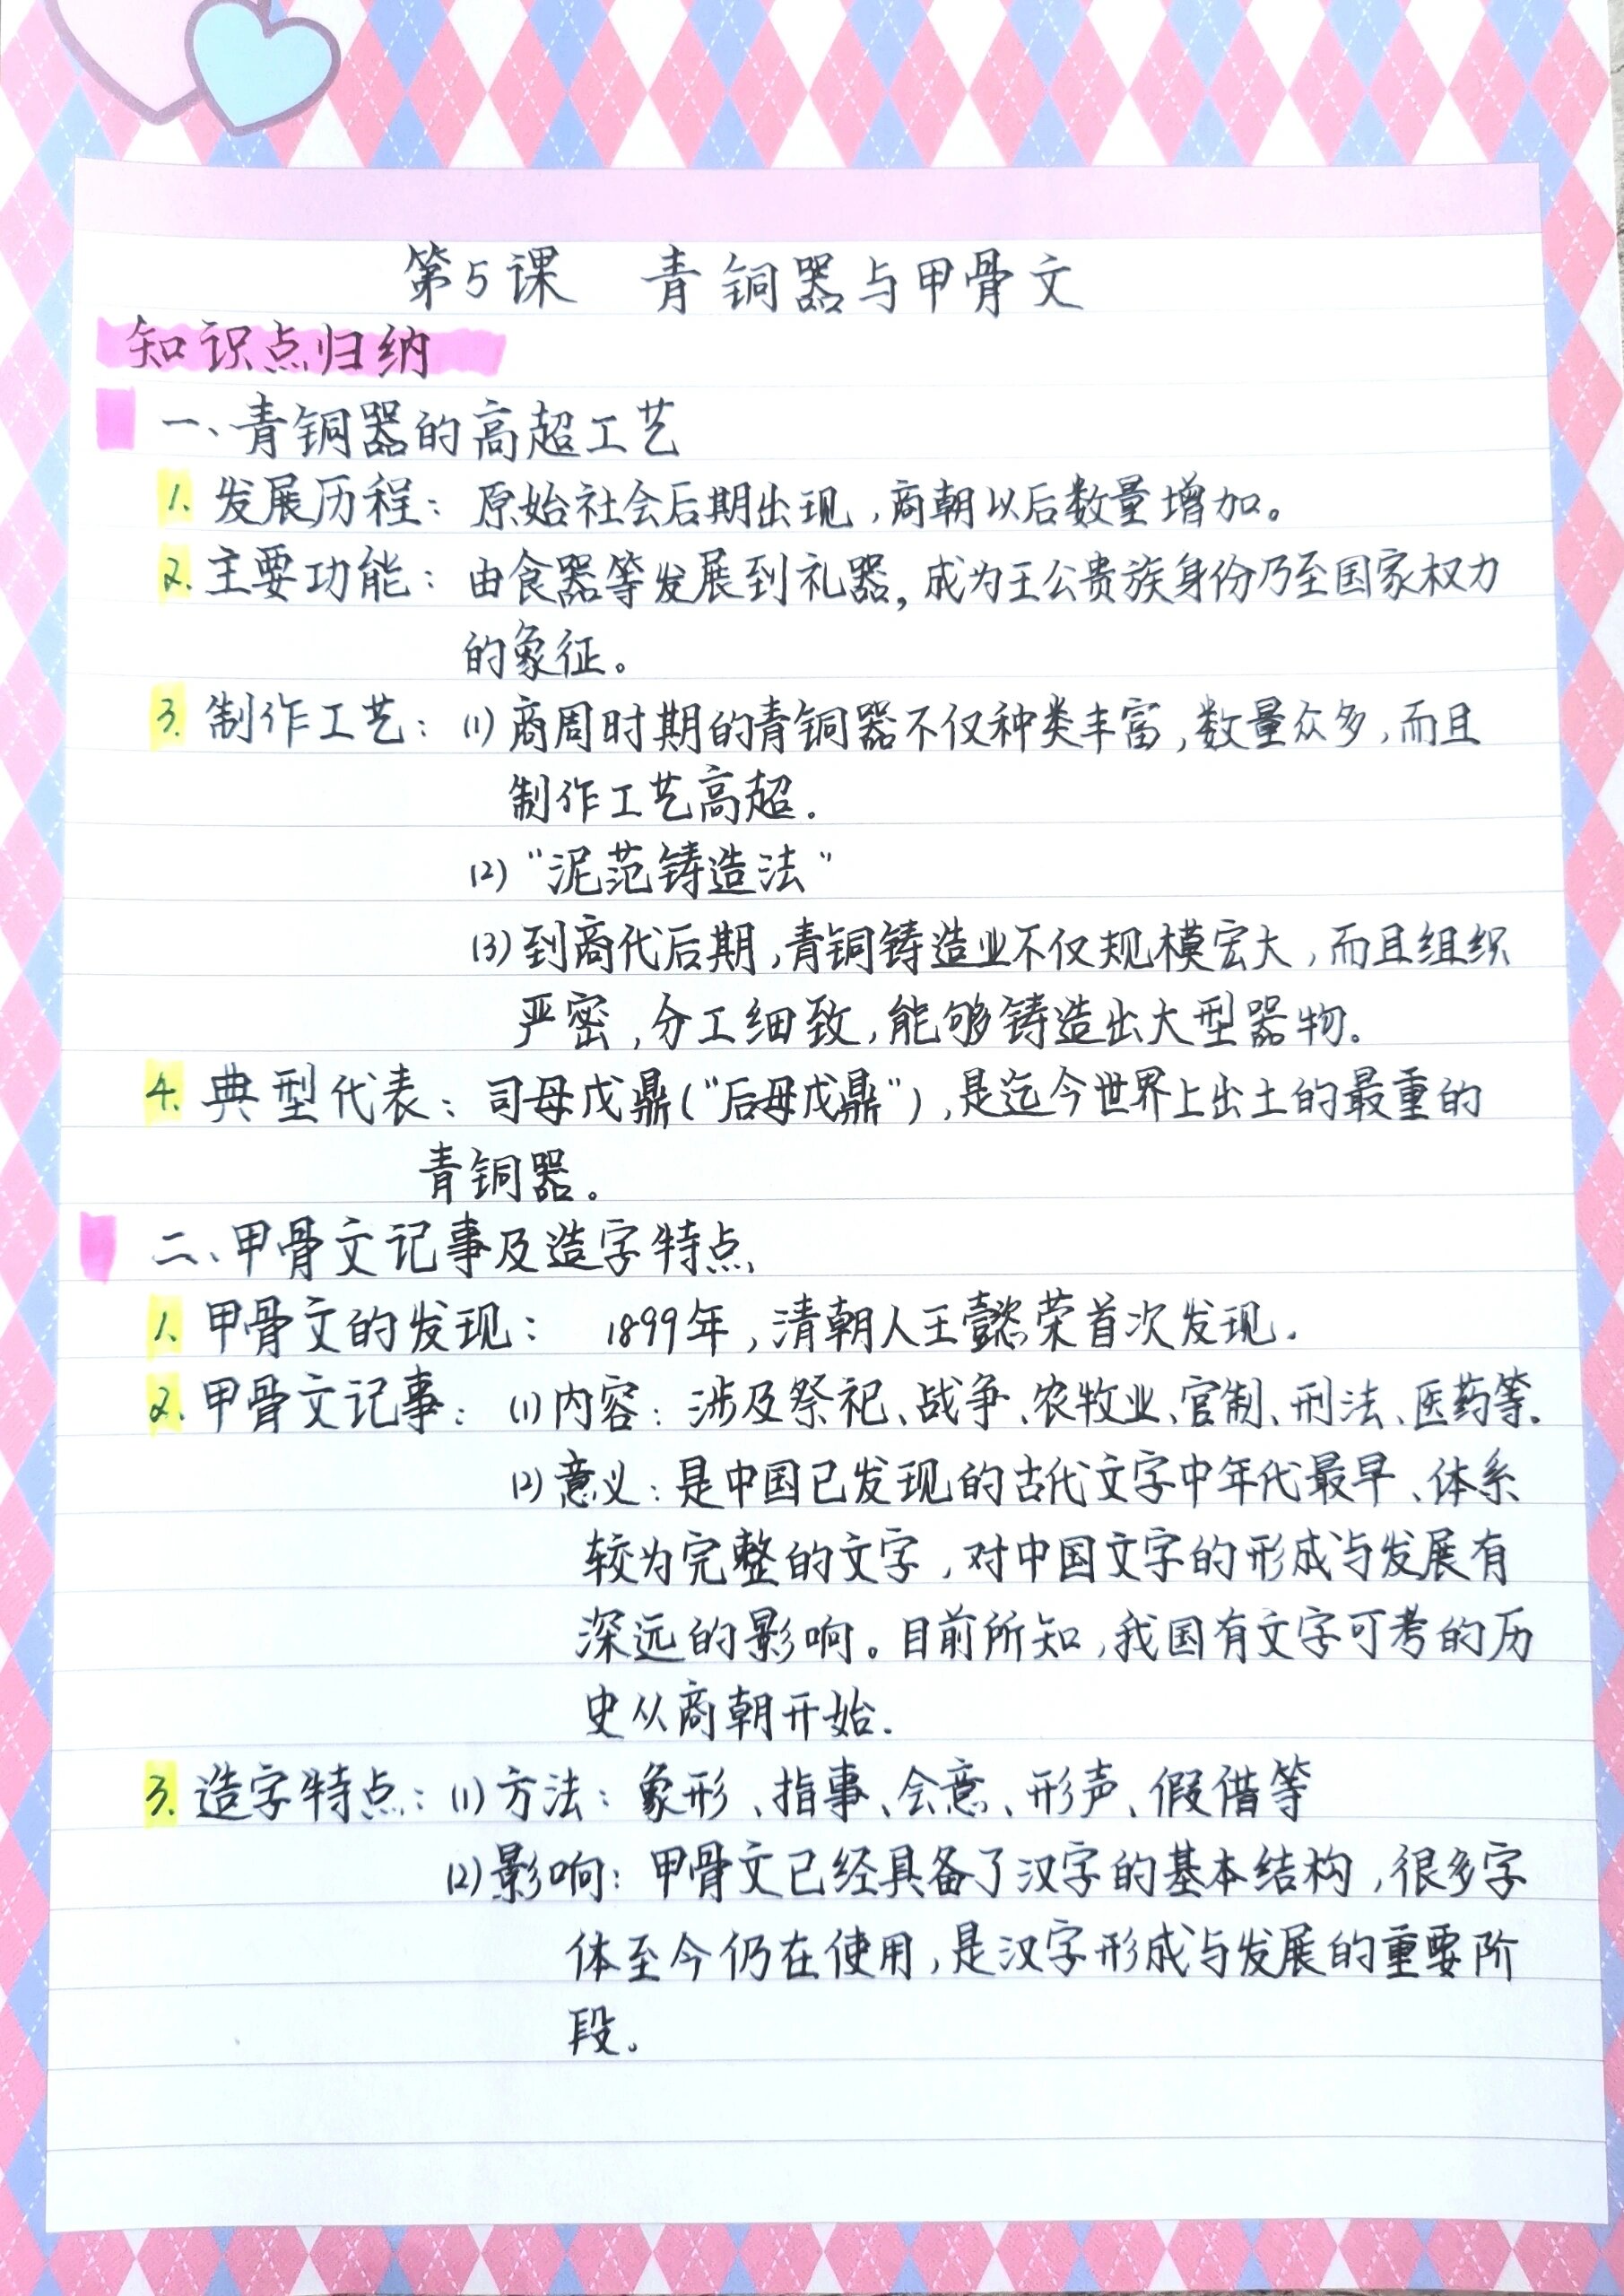 第5课 青铜器与甲骨文
知识点归纳
一、青铜器的高超工艺
1. 发展历程：原始社会后期出现，商朝以后数量增加。
2. 主要功能：由食器等发展到礼器，成为王公贵族身份乃至国家权力
的象征。
3. 制作工艺：(1)商周时期的青铜器不仅种类丰富，数量众多，而且
制作工艺高超.
(2)“泥范铸造法”
(3)到商代后期，青铜铸造业不仅规模宏大，而且组织
严密，分工细致，能够铸造出大型器物。
4. 典型代表：司母戊鼎(“后母戊鼎”)，是迄今世界上出土的最重的
青铜器。
二、甲骨文记事及造字特点
1. 甲骨文的发现： 1899年，清朝人王懿荣首次发现.
2. 甲骨文记事：(1)内容：涉及祭祀、战争、农牧业、官制、刑法、医药等.
(2)意义：是中国已发现的古代文字中年代最早、体系
较为完整的文字，对中国文字的形成与发展有
深远的影响。目前所知，我国有文字可考的历
史从商朝开始.
3. 造字特点：(1)方法：象形、指事、会意、形声、假借等
(2)影响：甲骨文已经具备了汉字的基本结构，很多字
体至今仍在使用，是汉字形成与发展的重要阶
段。